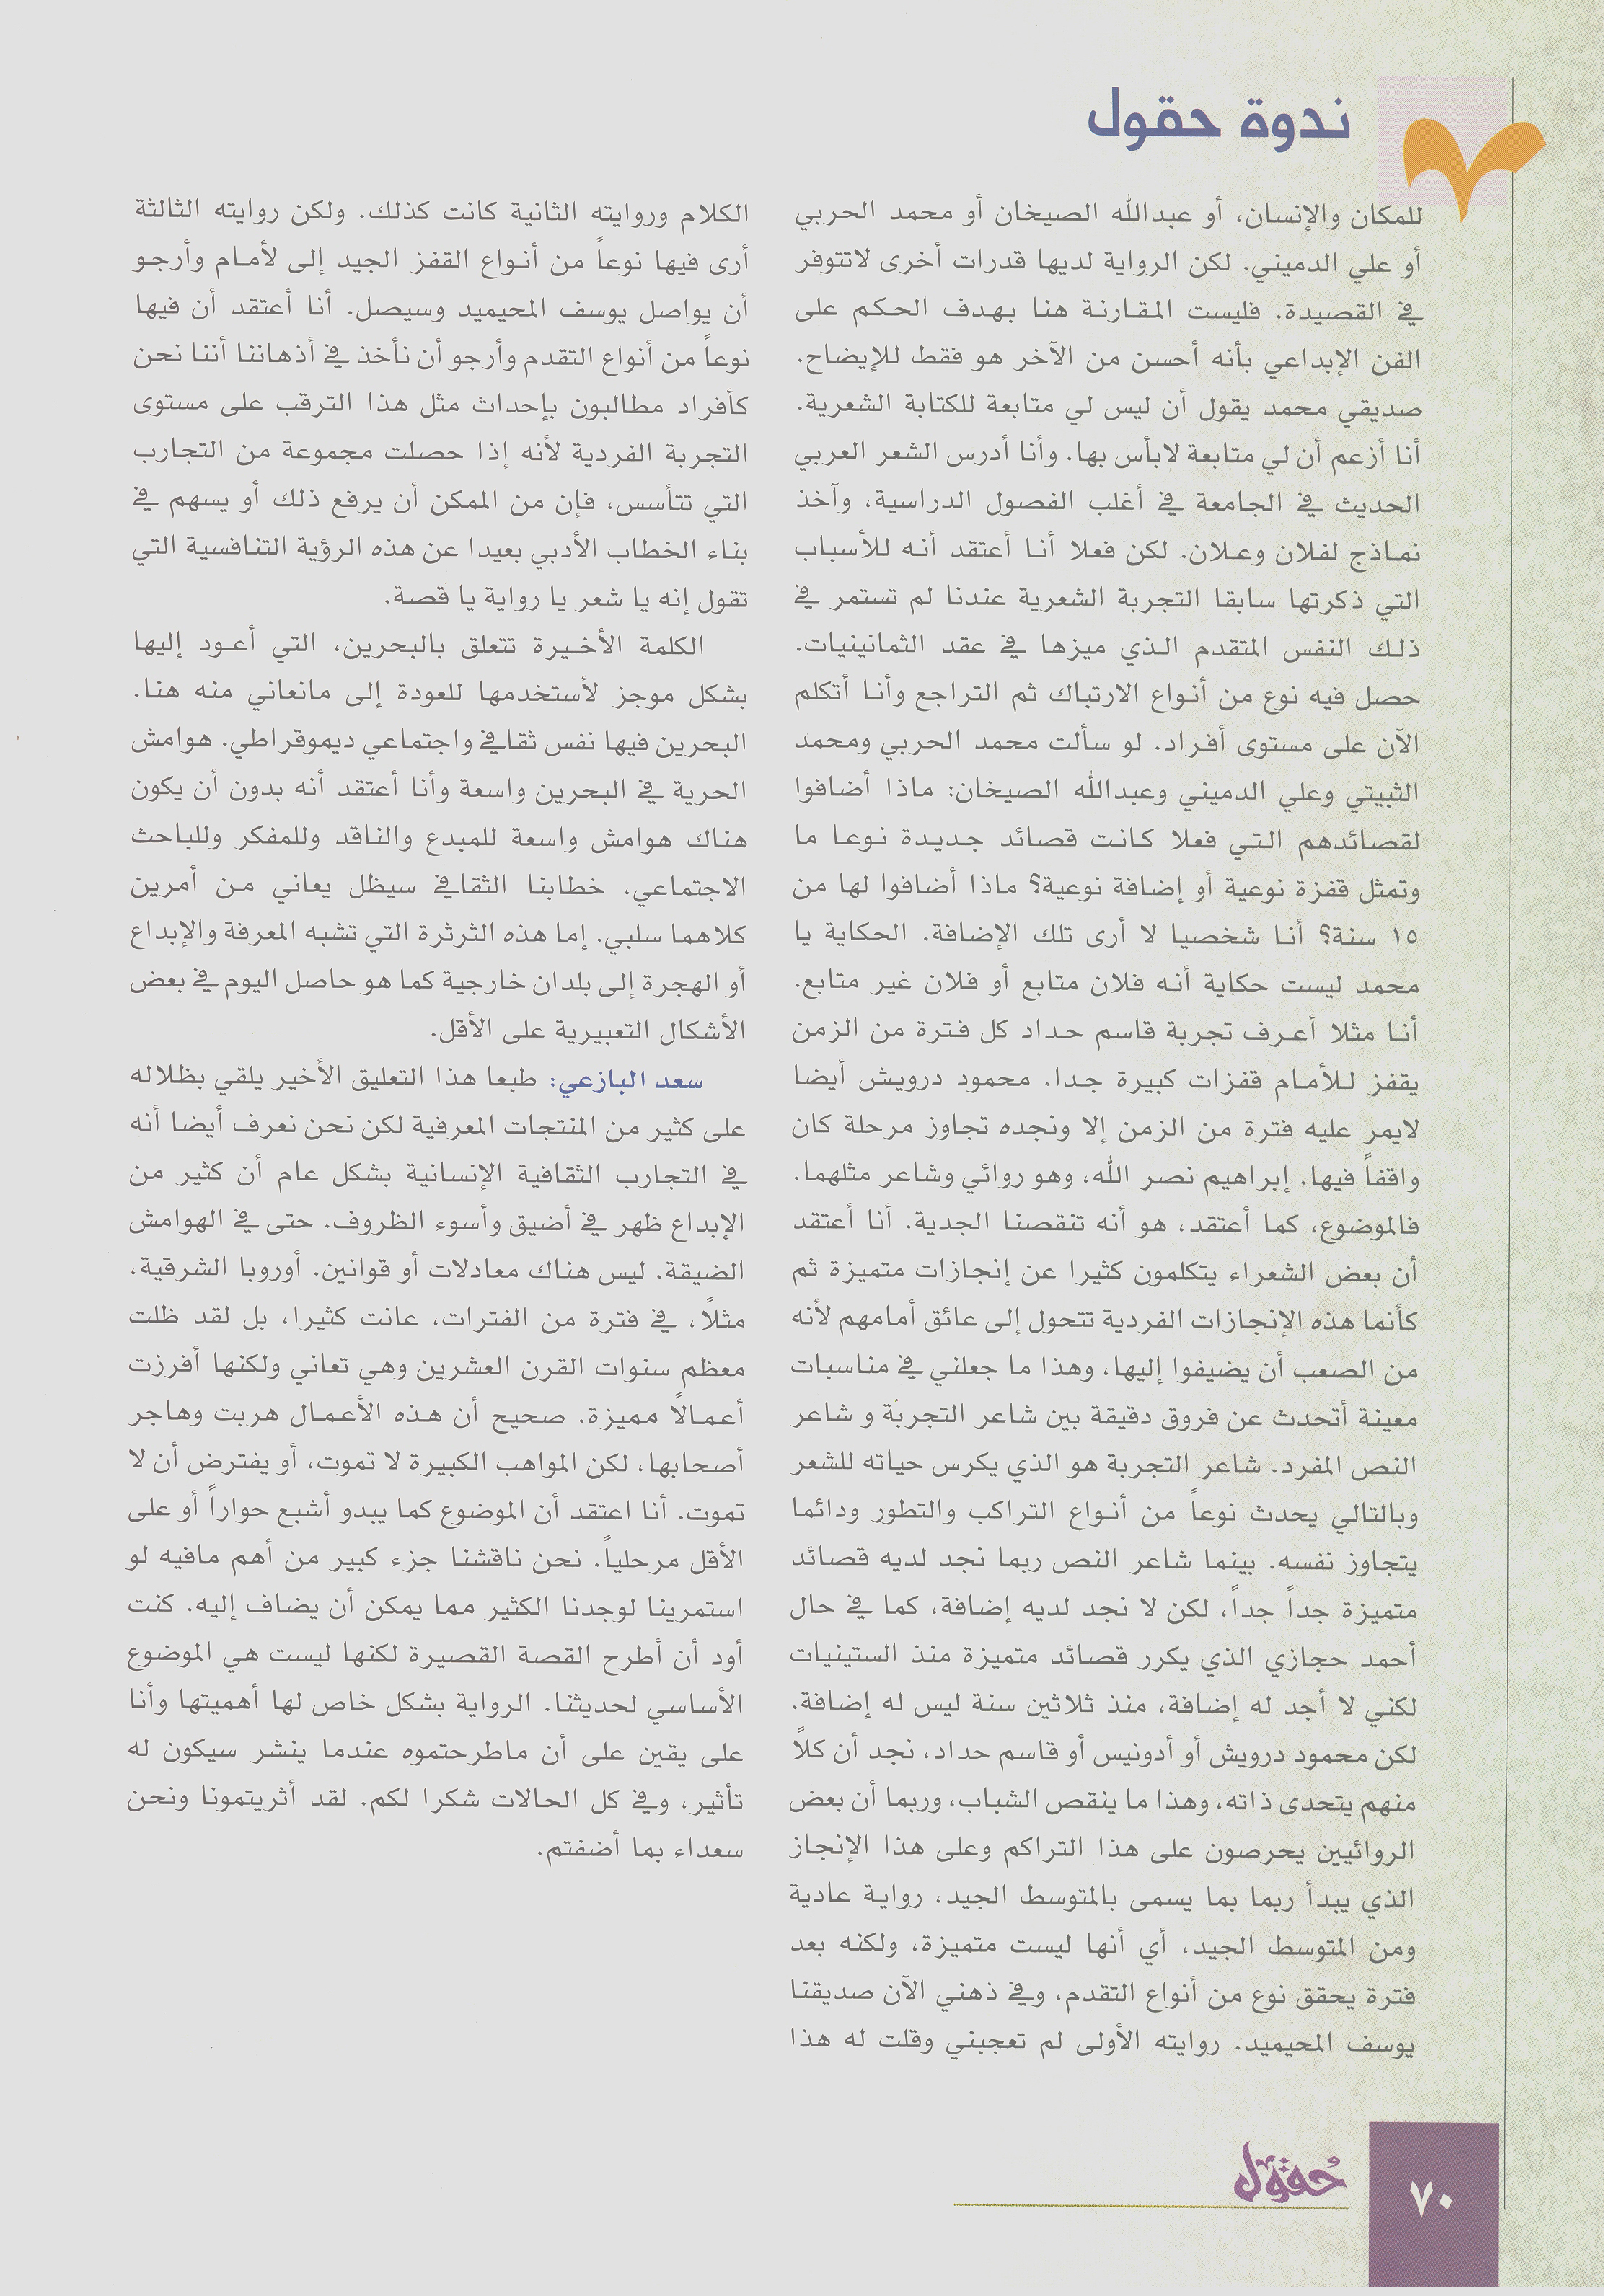 ندوة حقول
للمكان والإنسان، أو عبدالله الصيخان أو محمد الحربي
أو علي الدميني. لكن الرواية لديها قدرات أخرى لاتتوفر
في القصيدة. فليست المقارنة هنا بهدف الحكم على
الفن الإبداعي بأنه أحسن من الآخر هو فقط للإيضاح.
صديقي محمد يقول أن ليس لي متابعة للكتابة الشعرية.
أنا أزعم أن لي متابعة لابأس بها. وأنا أدرس الشعر العربي
الحديث في الجامعة في أغلب الفصول الدراسية، وآخذ
نماذج لفلان وعلان. لكن فعلا أنا أعتقد أنه للأسباب
التي ذكرتها سابقا التجربة الشعرية عندنا لم تستمر في
ذلك النفس المتقدم الذي ميزها في عقد الثمانينيات.
حصل فيه نوع من أنواع الارتباك ثم التراجع وأنا أتكلم
الآن على مستوى أفراد. لو سألت محمد الحربي ومحمد
الثبيتي وعلي الدميني وعبدالله الصيخان: ماذا أضافوا
لقصائدهم التي فعلا كانت قصائد جديدة نوعا ما
وتمثل قفزة نوعية أو إضافة نوعية؟ ماذا أضافوا لها من
١٥ سنة؟ أنا شخصيا لا أرى تلك الإضافة. الحكاية يا
محمد ليست حكاية أنه فلان متابع أو فلان غير متابع.
أنا مثلا أعرف تجربة قاسم حداد كل فترة من الزمن
يقفز للأمام قفزات كبيرة جدا. محمود درويش أيضا
لايمر عليه فترة من الزمن إلا ونجده تجاوز مرحلة كان
واقفاً فيها. إبراهيم نصر الله، وهو روائي وشاعر مثلهما.
فالموضوع، كما أعتقد، هو أنه تنقصنا الجدية. أنا أعتقد
أن بعض الشعراء يتكلمون كثيرا عن إنجازات متميزة ثم
كأنما هذه الإنجازات الفردية تتحول إلى عائق أمامهم لأنه
من الصعب أن يضيفوا إليها، وهذا ما جعلني في مناسبات
معينة أتحدث عن فروق دقيقة بين شاعر التجربة و شاعر
النص المفرد. شاعر التجربة هو الذي يكرس حياته للشعر
وبالتالي يحدث نوعاً من أنواع التراكب والتطور ودائما
يتجاوز نفسه. بينما شاعر النص ربما نجد لديه قصائد
متميزة جداً جداً، لكن لا نجد لديه إضافة، كما في حال
أحمد حجازي الذي يكرر قصائد متميزة منذ الستينيات
لكني لا أجد له إضافة، منذ ثلاثين سنة ليس له إضافة.
لكن محمود درويش أو أدونيس أو قاسم حداد، نجد أن كلاً
منهم يتحدى ذاته، وهذا ما ينقص الشباب، وربما أن بعض
الروائيين يحرصون على هذا التراكم وعلى هذا الإنجاز
الذي يبدأ ربما بما يسمى بالمتوسط الجيد، رواية عادية
ومن المتوسط الجيد، أي أنها ليست متميزة، ولكنه بعد
فترة يحقق نوع من أنواع التقدم، وفي ذهني الآن صديقنا
يوسف المحيميد. روايته الأولى لم تعجبني وقلت له هذا
الكلام وروايته الثانية كانت كذلك. ولكن روايته الثالثة
أرى فيها نوعاً من أنواع القفز الجيد إلى لأمام وأرجو
أن يواصل يوسف المحيميد وسيصل. أنا أعتقد أن فيها
نوعاً من أنواع التقدم وأرجو أن نأخذ في أذهاننا أننا نحن
كأفراد مطالبون بإحداث مثل هذا الترقب على مستوى
التجربة الفردية لأنه إذا حصلت مجموعة من التجارب
التي تتأسس، فإن من الممكن أن يرفع ذلك أو يسهم في
بناء الخطاب الأدبي بعيدا عن هذه الرؤية التنافسية التي
تقول إنه يا شعر يا رواية يا قصة.
الكلمة الأخيرة تتعلق بالبحرين، التي أعود إليها
بشكل موجز لأستخدمها للعودة إلى مانعاني منه هنا.
البحرين فيها نفس ثقافي واجتماعي ديموقراطي. هوامش
الحرية في البحرين واسعة وأنا أعتقد أنه بدون أن يكون
هناك هوامش واسعة للمبدع والناقد وللمفكر وللباحث
الاجتماعي، خطابنا الثقافي سيظل يعاني من أمرين
كلاهما سلبي. إما هذه الثرثرة التي تشبه المعرفة والإبداع
أو الهجرة إلى بلدان خارجية كما هو حاصل اليوم في بعض
الأشكال التعبيرية على الأقل.
سعد البازعي: طبعا هذا التعليق الأخير يلقي بظلاله
على كثير من المنتجات المعرفية لكن نحن نعرف أيضا أنه
في التجارب الثقافية الإنسانية بشكل عام أن كثير من
الإبداع ظهر في أضيق وأسوء الظروف. حتى في الهوامش
الضيقة. ليس هناك معادلات أو قوانين. أوروبا الشرقية،
مثلاً، في فترة من الفترات، عانت كثيرا، بل لقد ظلت
معظم سنوات القرن العشرين وهي تعاني ولكنها أفرزت
أعمالاً مميزة. صحيح أن هذه الأعمال هربت وهاجر
أصحابها، لكن المواهب الكبيرة لا تموت، أو يفترض أن لا
تموت. أنا اعتقد أن الموضوع كما يبدو أشبع حواراً أو على
الأقل مرحلياً. نحن ناقشنا جزء كبير من أهم مافيه لو
استمرينا لوجدنا الكثير مما يمكن أن يضاف إليه. كنت
أود أن أطرح القصة القصيرة لكنها ليست هي الموضوع
الأساسي لحديثنا. الرواية بشكل خاص لها أهميتها وأنا
على يقين على أن ماطرحتموه عندما ينشر سيكون له
تأثير، وفي كل الحالات شكرا لكم. لقد أثريتمونا ونحن
سعداء بما أضفتم.
حقول
٧٠